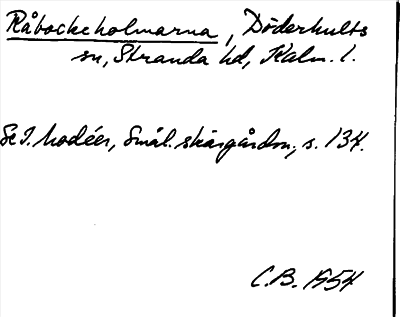 Råbockeholmarna, Döderhults
sn, Stranda hd, Kalm. l.
Se I. Modéer, Smål. skärgårdsn, s. 134.
C.B. 1954